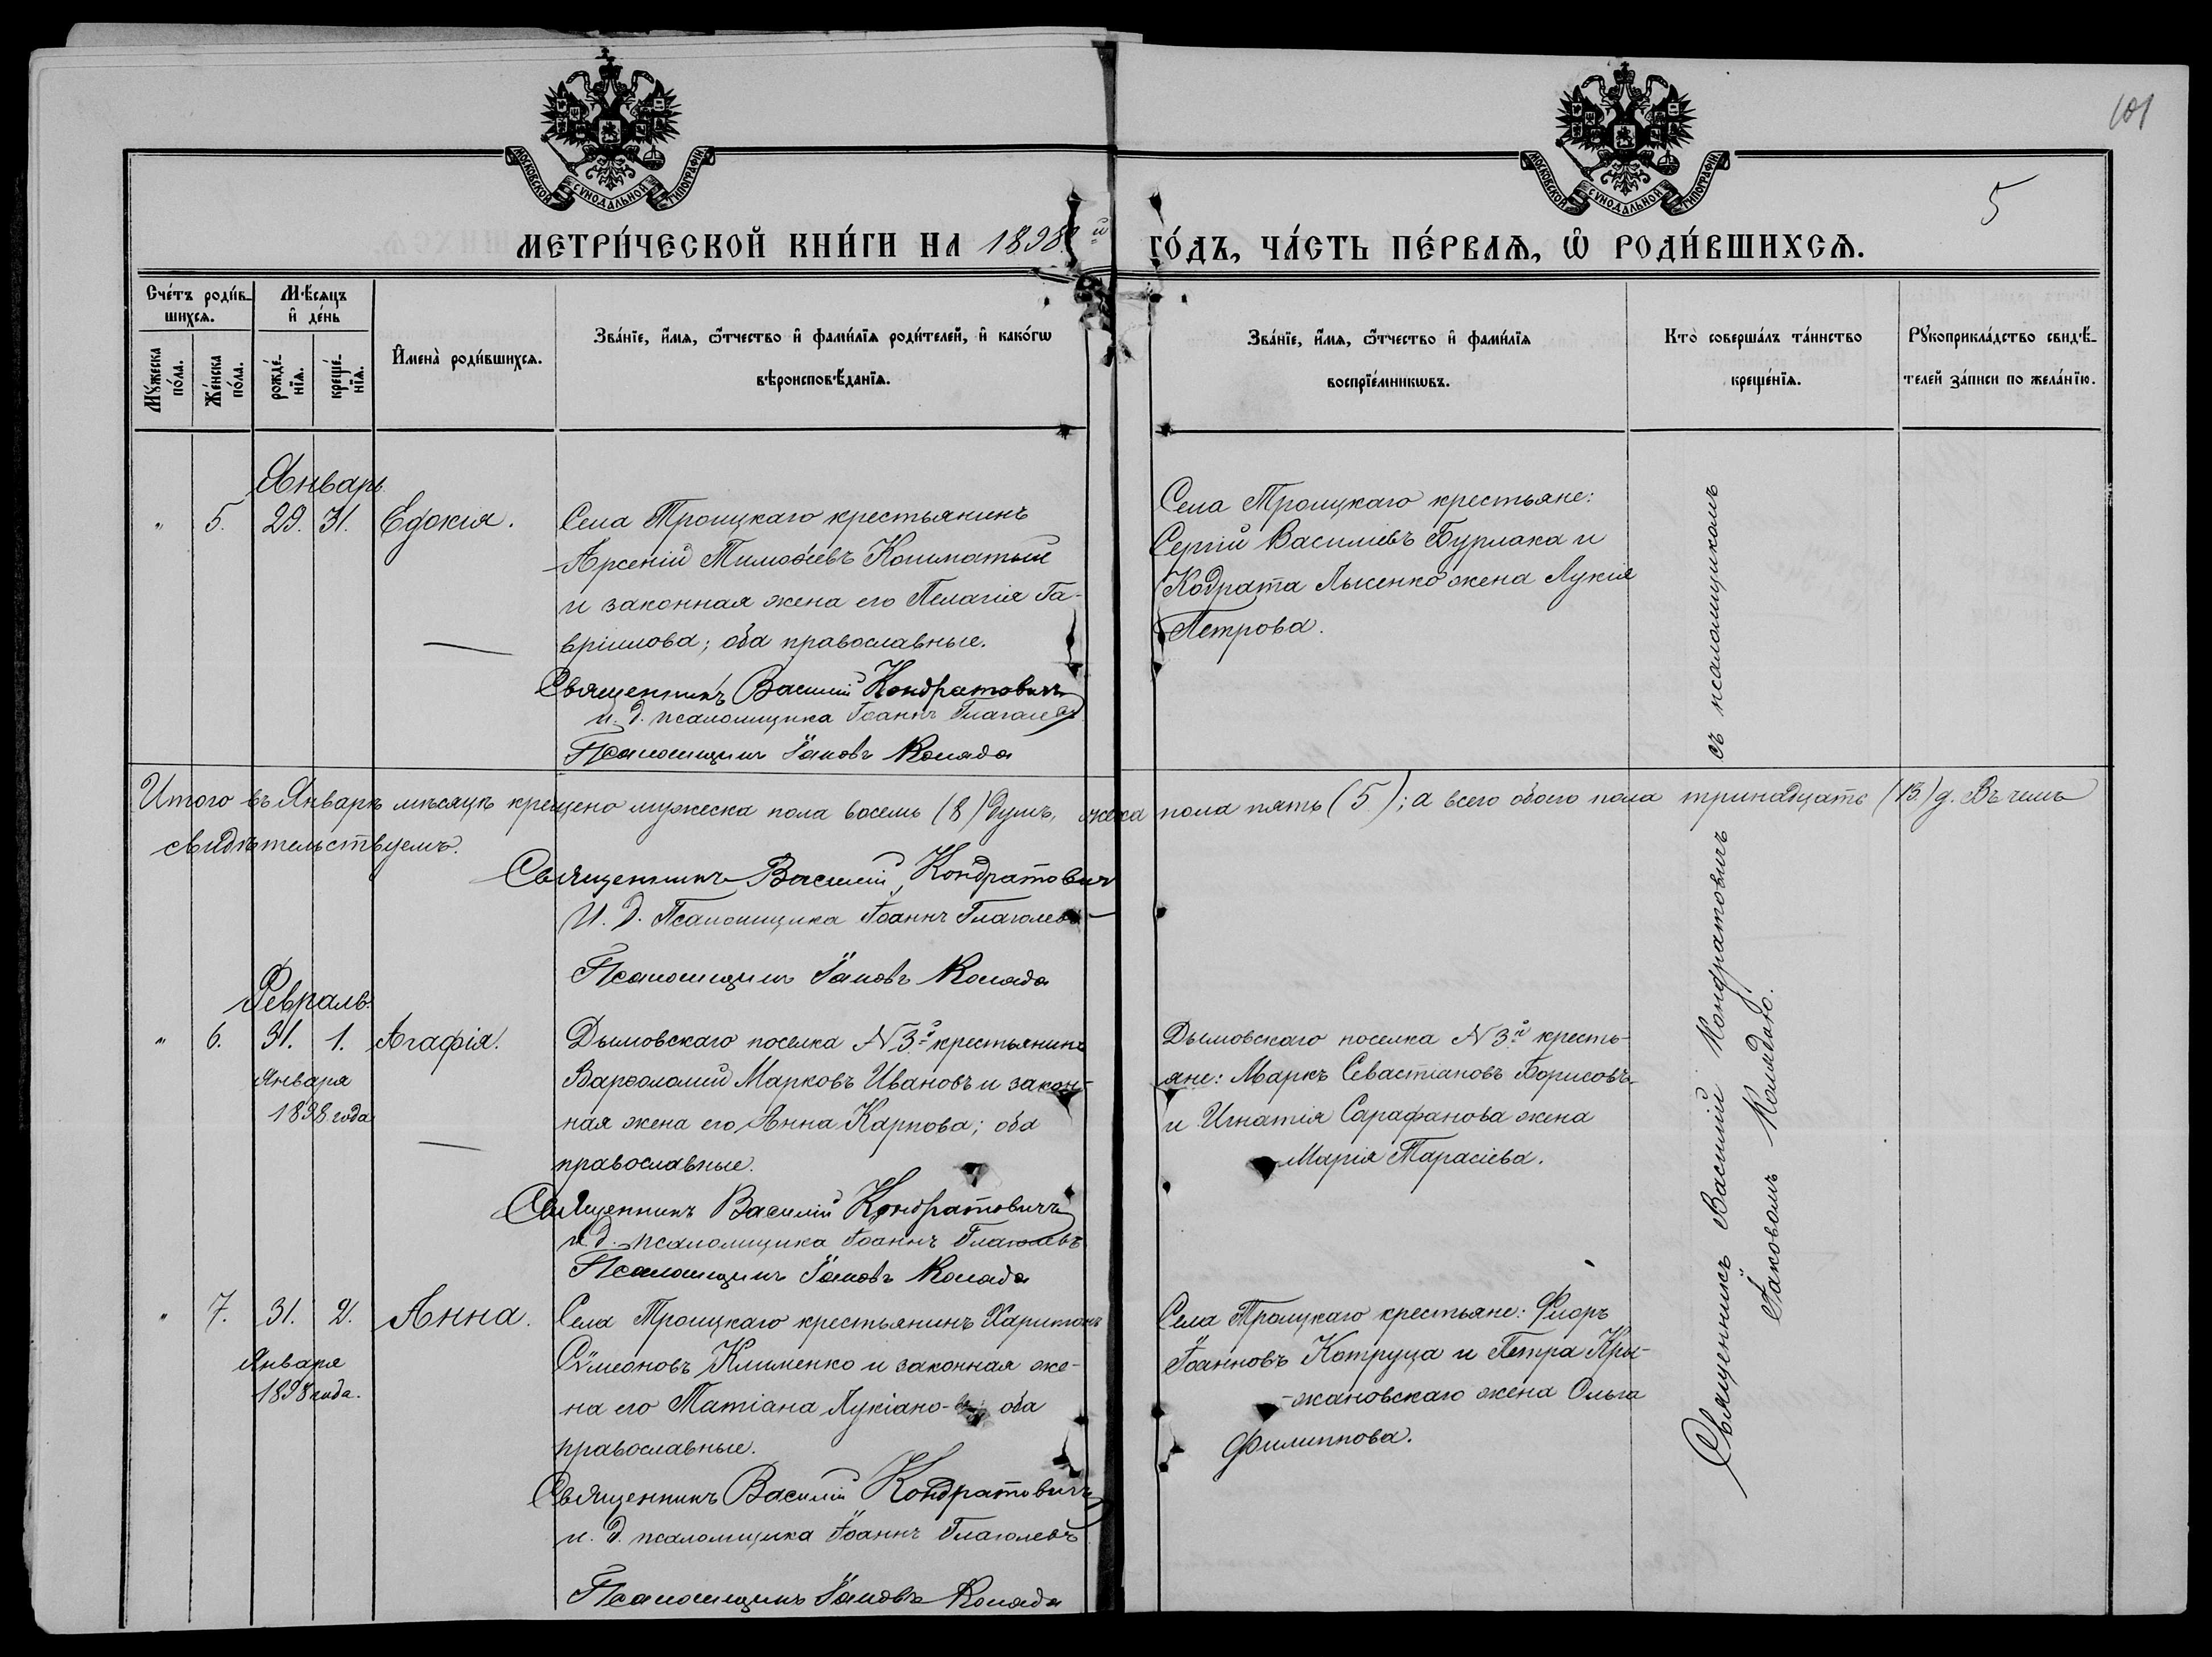 101
5
МОСКОВСКОЙ СѴНОДАЛЬНОЙ ТИПОГРАФІИ
МОСКОВСКОЙ СѴНОДАЛЬНОЙ ТИПОГРАФІИ
МЕТРИ́ЧЕСКОЙ КНИ́ГИ НА 1898й ГО́ДЪ, ЧА́СТЬ ПЕ́РВАѦ, Ѡ РОДИ́ВШИХСѦ.
Сче́тъ роди́в-
шихсѧ.
Мꙋ́жеска
по́ла.
Же́нска
по́ла.
Мѣ́сѧцъ
и҆ де́нь
рожде́-
нїѧ.
креще́-
нїѧ.
И҆мена̀ роди́вшихсѧ.
Зва́нїе, и҆́мѧ, ѻ҆́тчество и҆ фами́лїѧ роди́телей, и҆ како́гѡ
вѣроисповѣ́данїѧ.
Зва́нїе, и҆́мѧ, ѻ҆́тчество и҆ фами́лїѧ
воспрїе́мникѡвъ.
Кто̀ соверша́лъ та́инство
креще́нїѧ.
Рꙋкоприкла́дство свидѣ́-
телей за́писи по жела́нїю.
Январь
" 5. 29. 31. Едокія.
Села Троицкаго крестьянинъ
Арсеній Тимоѳеевъ Колматый
и законная жена его Пелагія Га-
вріилова; оба православные.
Священникъ Василій Кондратовичъ
и. д. псаломщика Іоаннъ Глаголевъ
Псаломщикъ Іаковъ Коляда
Села Троицкаго крестьяне:
Сергій Василіевъ Бурлака и
Кодрата Лысенко жена Лукія
Петрова.
Итого въ Январѣ мѣсяцѣ крещено мужеска пола восемь (8) душъ, женска пола пять (5); а всего обоего пола тринадцать (13) д. Въ чемъ
свидѣтельствуемъ.
Священникъ Василій Кондратовичъ
И. д. Псаломщика Іоаннъ Глаголевъ
Псаломщикъ Іаковъ Коляда
Февраль.
" 6. 31. 1. Агафія.
Января
1898 года
Дымовскаго поселка N 3й крестьянинъ
Варѳоломій Марковъ Ивановъ и закон-
ная жена его Анна Карпова; оба
православные.
Священникъ Василій Кондратовичъ
и. д. псаломщика Іоаннъ Глаголевъ
Псаломщикъ Іаковъ Коляда
Дымовскаго поселка N 3й кресть-
яне: Маркъ Севастіановъ Борисовъ
и Игнатія Сарафанова жена
Марія Тарасіева.
" 7. 31. 2. Анна.
Января
1898 года.
Села Троицкаго крестьянинъ Харитонъ
Сѵмеоновъ Клименко и законная же-
на его Татіана Лукіано-ва; оба
православные.
Священникъ Василій Кондратовичъ
и. д. псаломщика Іоаннъ Глаголевъ
Псаломщикъ Іаковъ Коляда
Села Троицкаго крестьяне: Флоръ
Іоанновъ Котруца и Петра Кры-
-жановскаго жена Ольга
Филиппова.
Священникъ Василій Кондратовичъ съ псаломщикомъ
Іаковомъ Колядою.